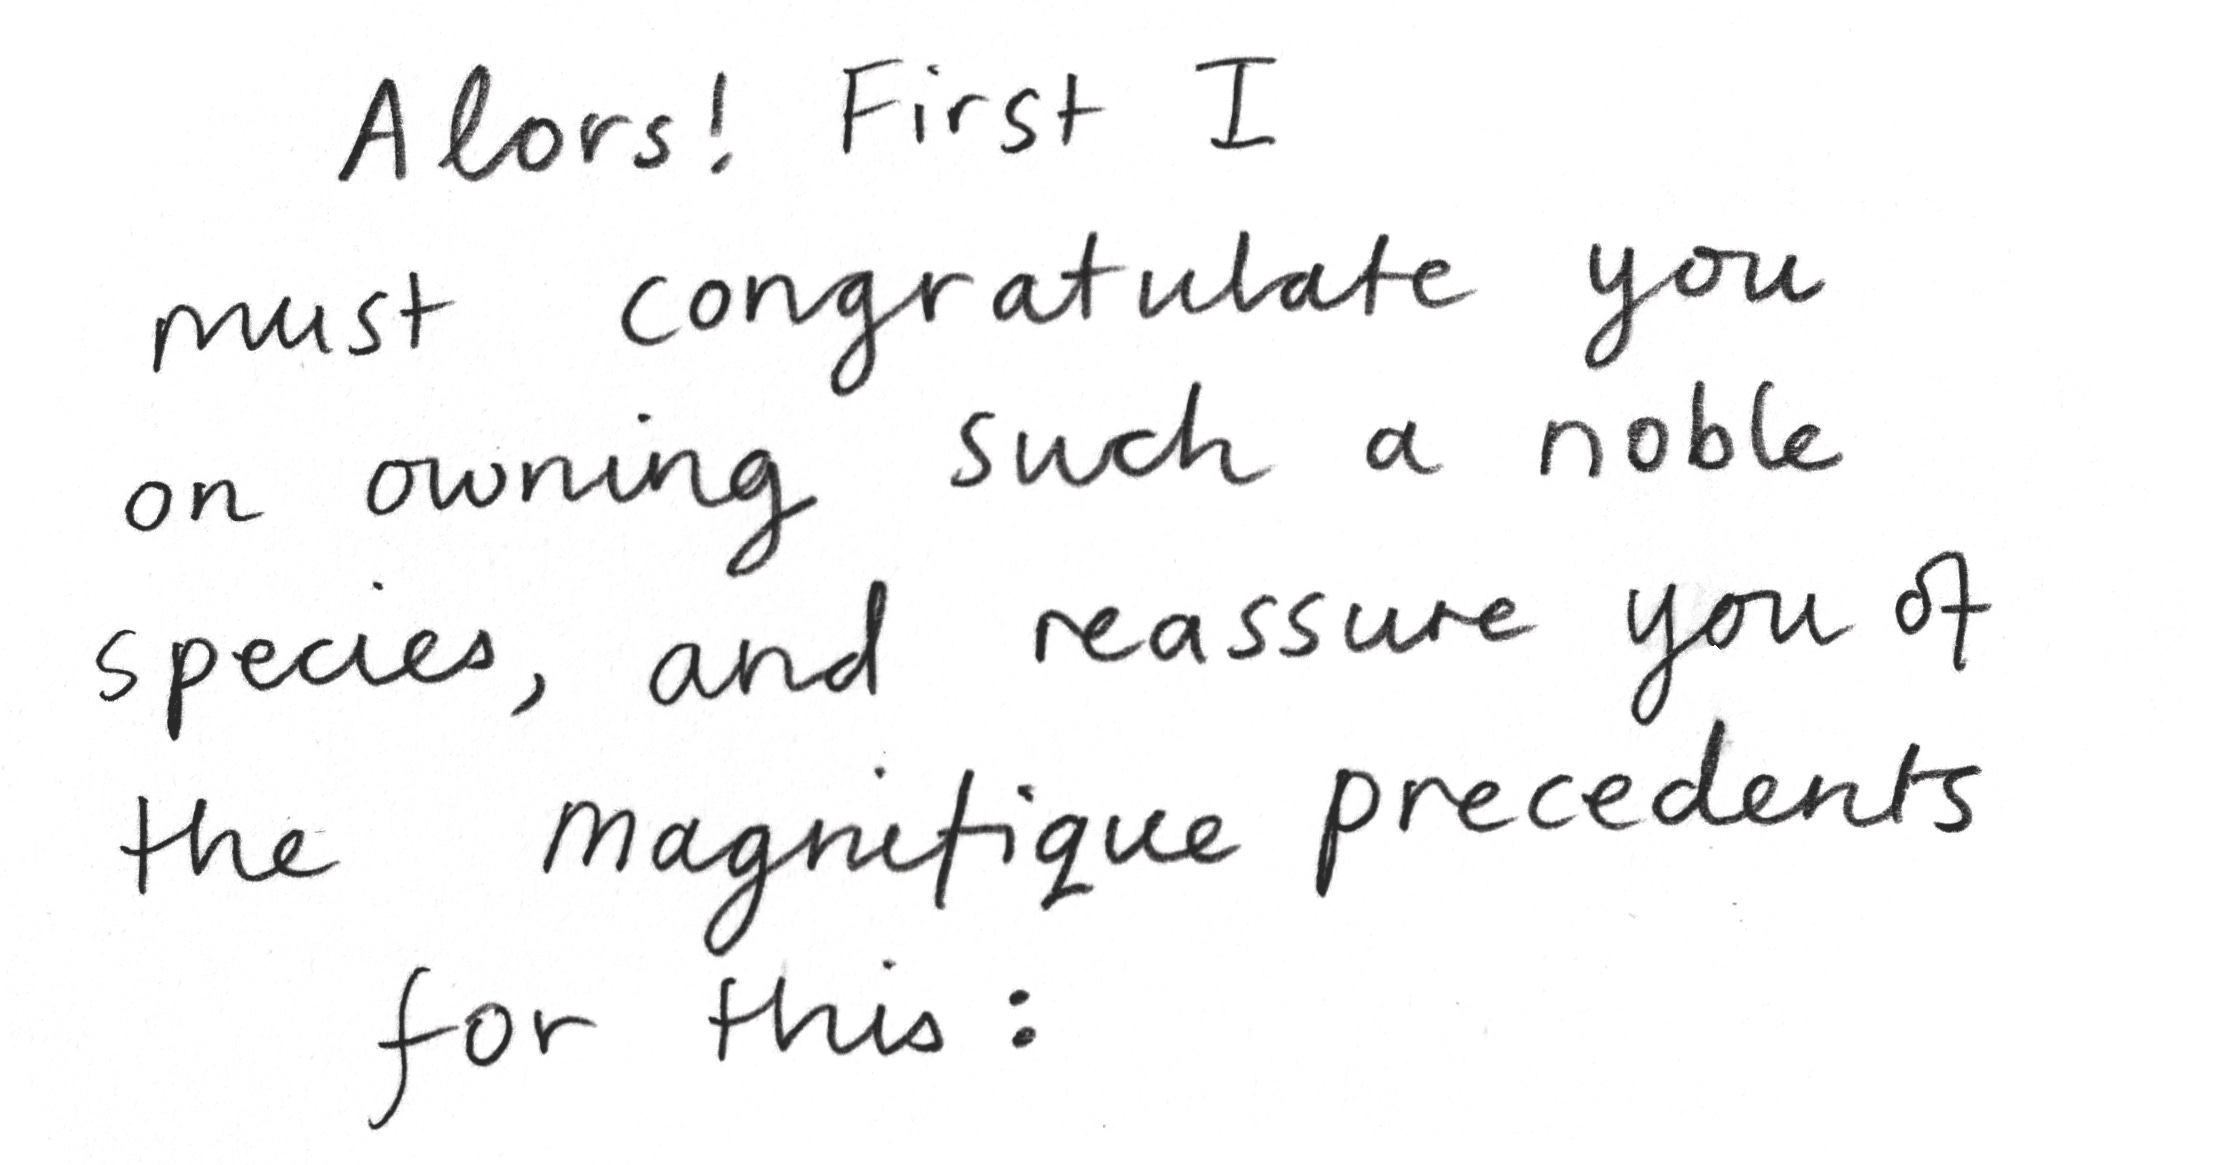 Alors! First I
must congratulate you
on owning such a noble
species, and reassure you of
the magnifique precedents
for this: